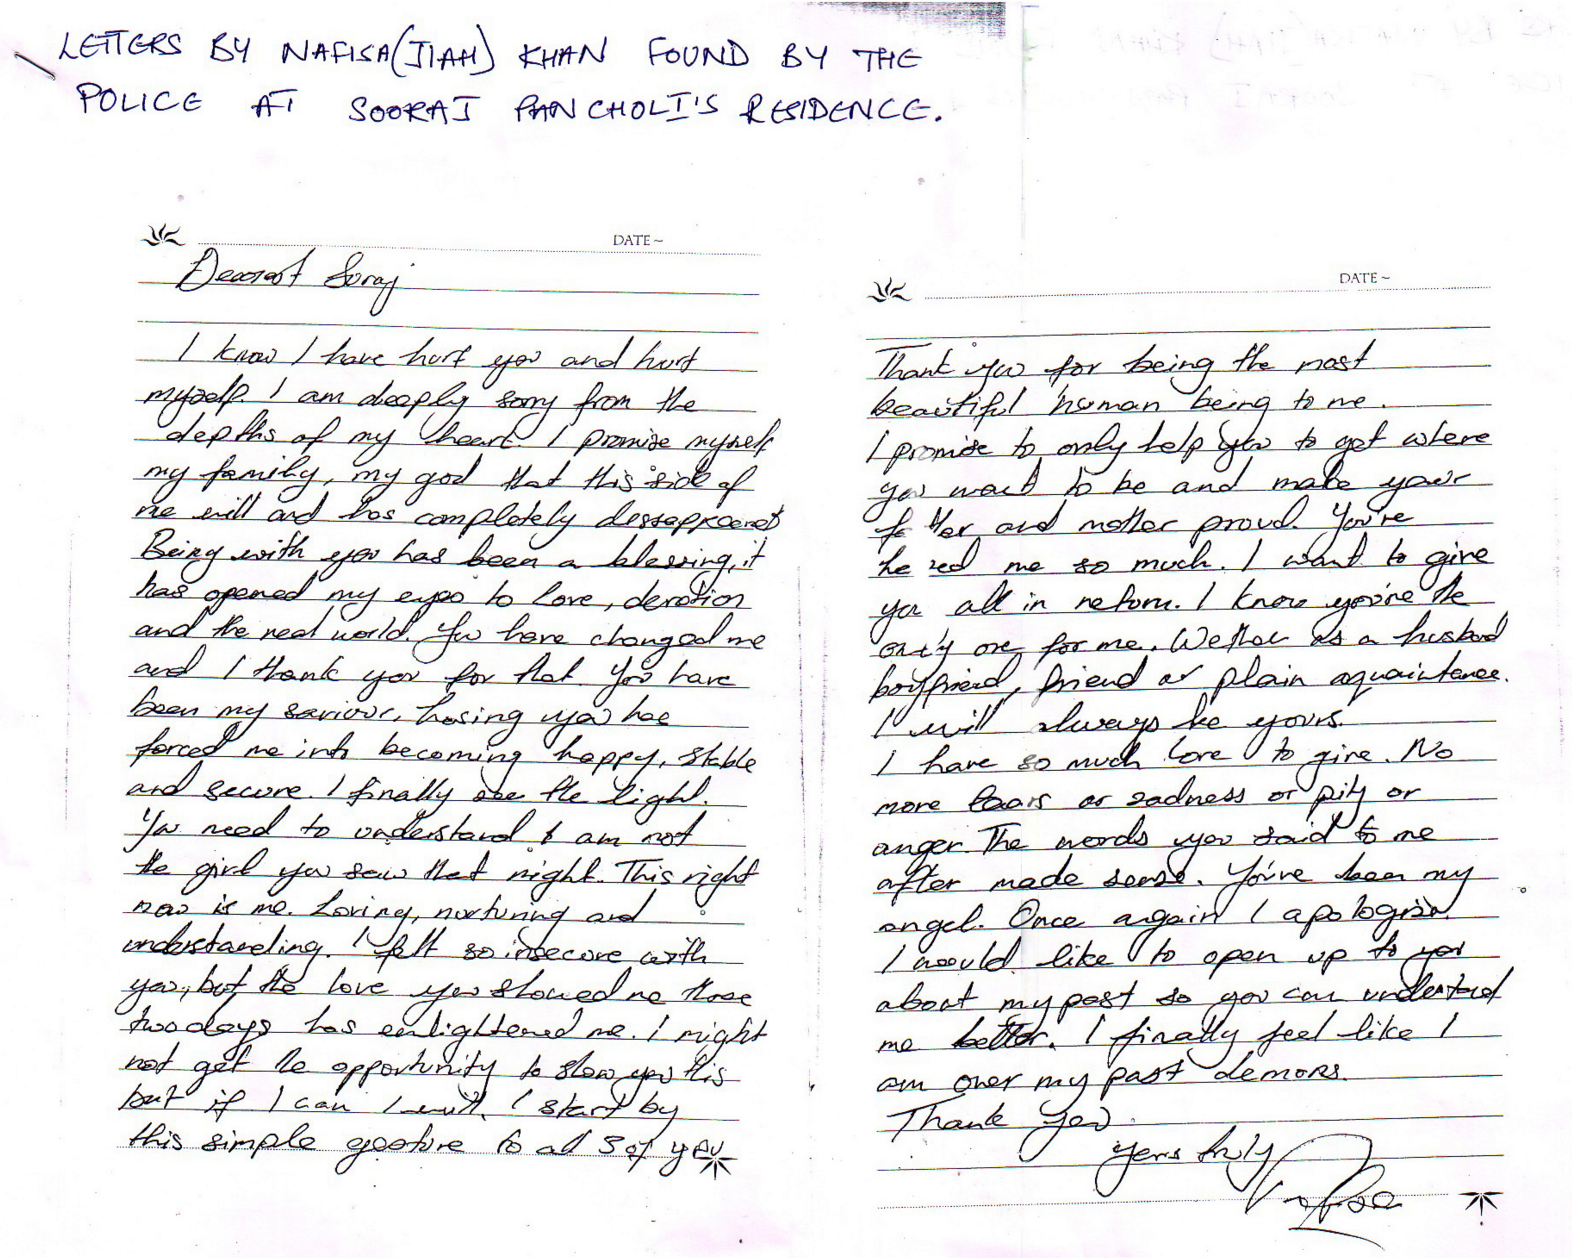 LETTERS BY NAFISA(JIAH) KHAN FOUND BY THE
POLICE AT SOORAJ PANCHOLI'S RESIDENCE.
DATE~
Dearest Suraj
I know I have hurt you and hurt
myself. I am deeply sorry from the
depths of my heart. I promise myself
my family, my god that this side of
me will and has completely dissappeared
Being with you has been a blessing, it
has opened my eyes to love, devotion
and the real world. You have changed me
and I thank you for that. You have
been my saviour, losing you has
forced me into becoming happy, stable
and secure. I finally see the light.
You need to understand I am not
the girl you saw that night. This right
now is me. Loving, nurturing and
understanding. I felt so insecure with
you, but the love you showed me those
two days has enlightened me. I might
not get the opportunity to show you this
but if I can I will. I start by
this simple gesture to all 5 of you
DATE~
Thank you for being the most
beautiful human being to me.
I promise to only help you to get where
you want to be and make your
father and mother proud. You've
me so much. I want to give
you all in return. I know you're the
only one for me. Wether as a husband
boyfriend, friend or plain aquaintance.
I will always be yours.
I have so much love to give. No
more tears or sadness or pity or
anger. The words you said to me
after made sense. You've been my
angel. Once again I apologise.
I would like to open up to you
about my past so you can understand
me better. I finally feel like I
am over my past demons.
Thank you.
yours truly